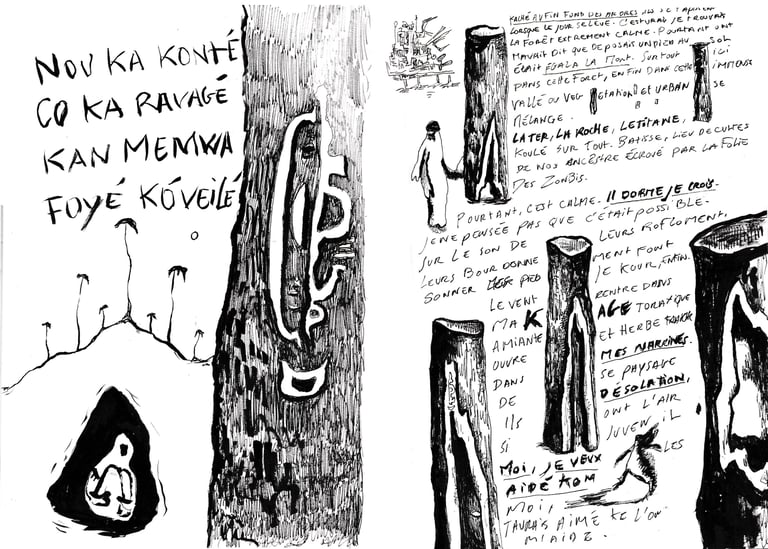 NOU KA KONTÉ
CO KA RAVAGÉ
KAN MEMWA
FOYÉ KÓVEILÉ
KACHÉ AU FIN FOND DES ARBRES ILS SE
LORSQUE LE JOUR SE LEVE. C'EST VRAI JE TROUVAIS
LA FORÊT EXTREMENT CALME. POURTANT ONT
M'AVAIT DIT QUE DE POSAIS UN PIED AU SOL
ÉTAIT EGALA LA MORT. SURTOUT ICI
DANS CETTE FORET, ENFIN DANS CETTE IMMENSE
VALLÉ OU VEG ETATION ET URBAN SE
MÉLANGE.
LATER, LA ROCHE, LETITANE,
KOULÉ SUR TOUT. BATISSE, LIEU DE CULTES
DE NOS ANCÊTRE ÉCROUÉ PAR LA FOLIE
DES ZONBIS.
POURTANT, C'EST CALME. Il DORME JE CROIS.
JE NE PENSÉE PAS QUE C'ÉTAIT POSSIBLE.
SUR LE SON DE LEURS ROFLOMENT,
LEURS BOURDONNE MENT FONT
SONNER PIED JE KOUR, ENFIN.
LE VENT RENTRE DANS
MA K AGE TORATIQUE
AMIANTE ET HERBE FRAICHE
OUVRE MES NARRINES.
DANS SE PAYSAGE
DE DÉSOLATION,
ILS ONT L'AIR
SI JUVENIL
MOI, JE VEUX LES
AIDÉ KOM
MOI,
J'AURAIS AIMÉ KE L'ON
M'AIDE.